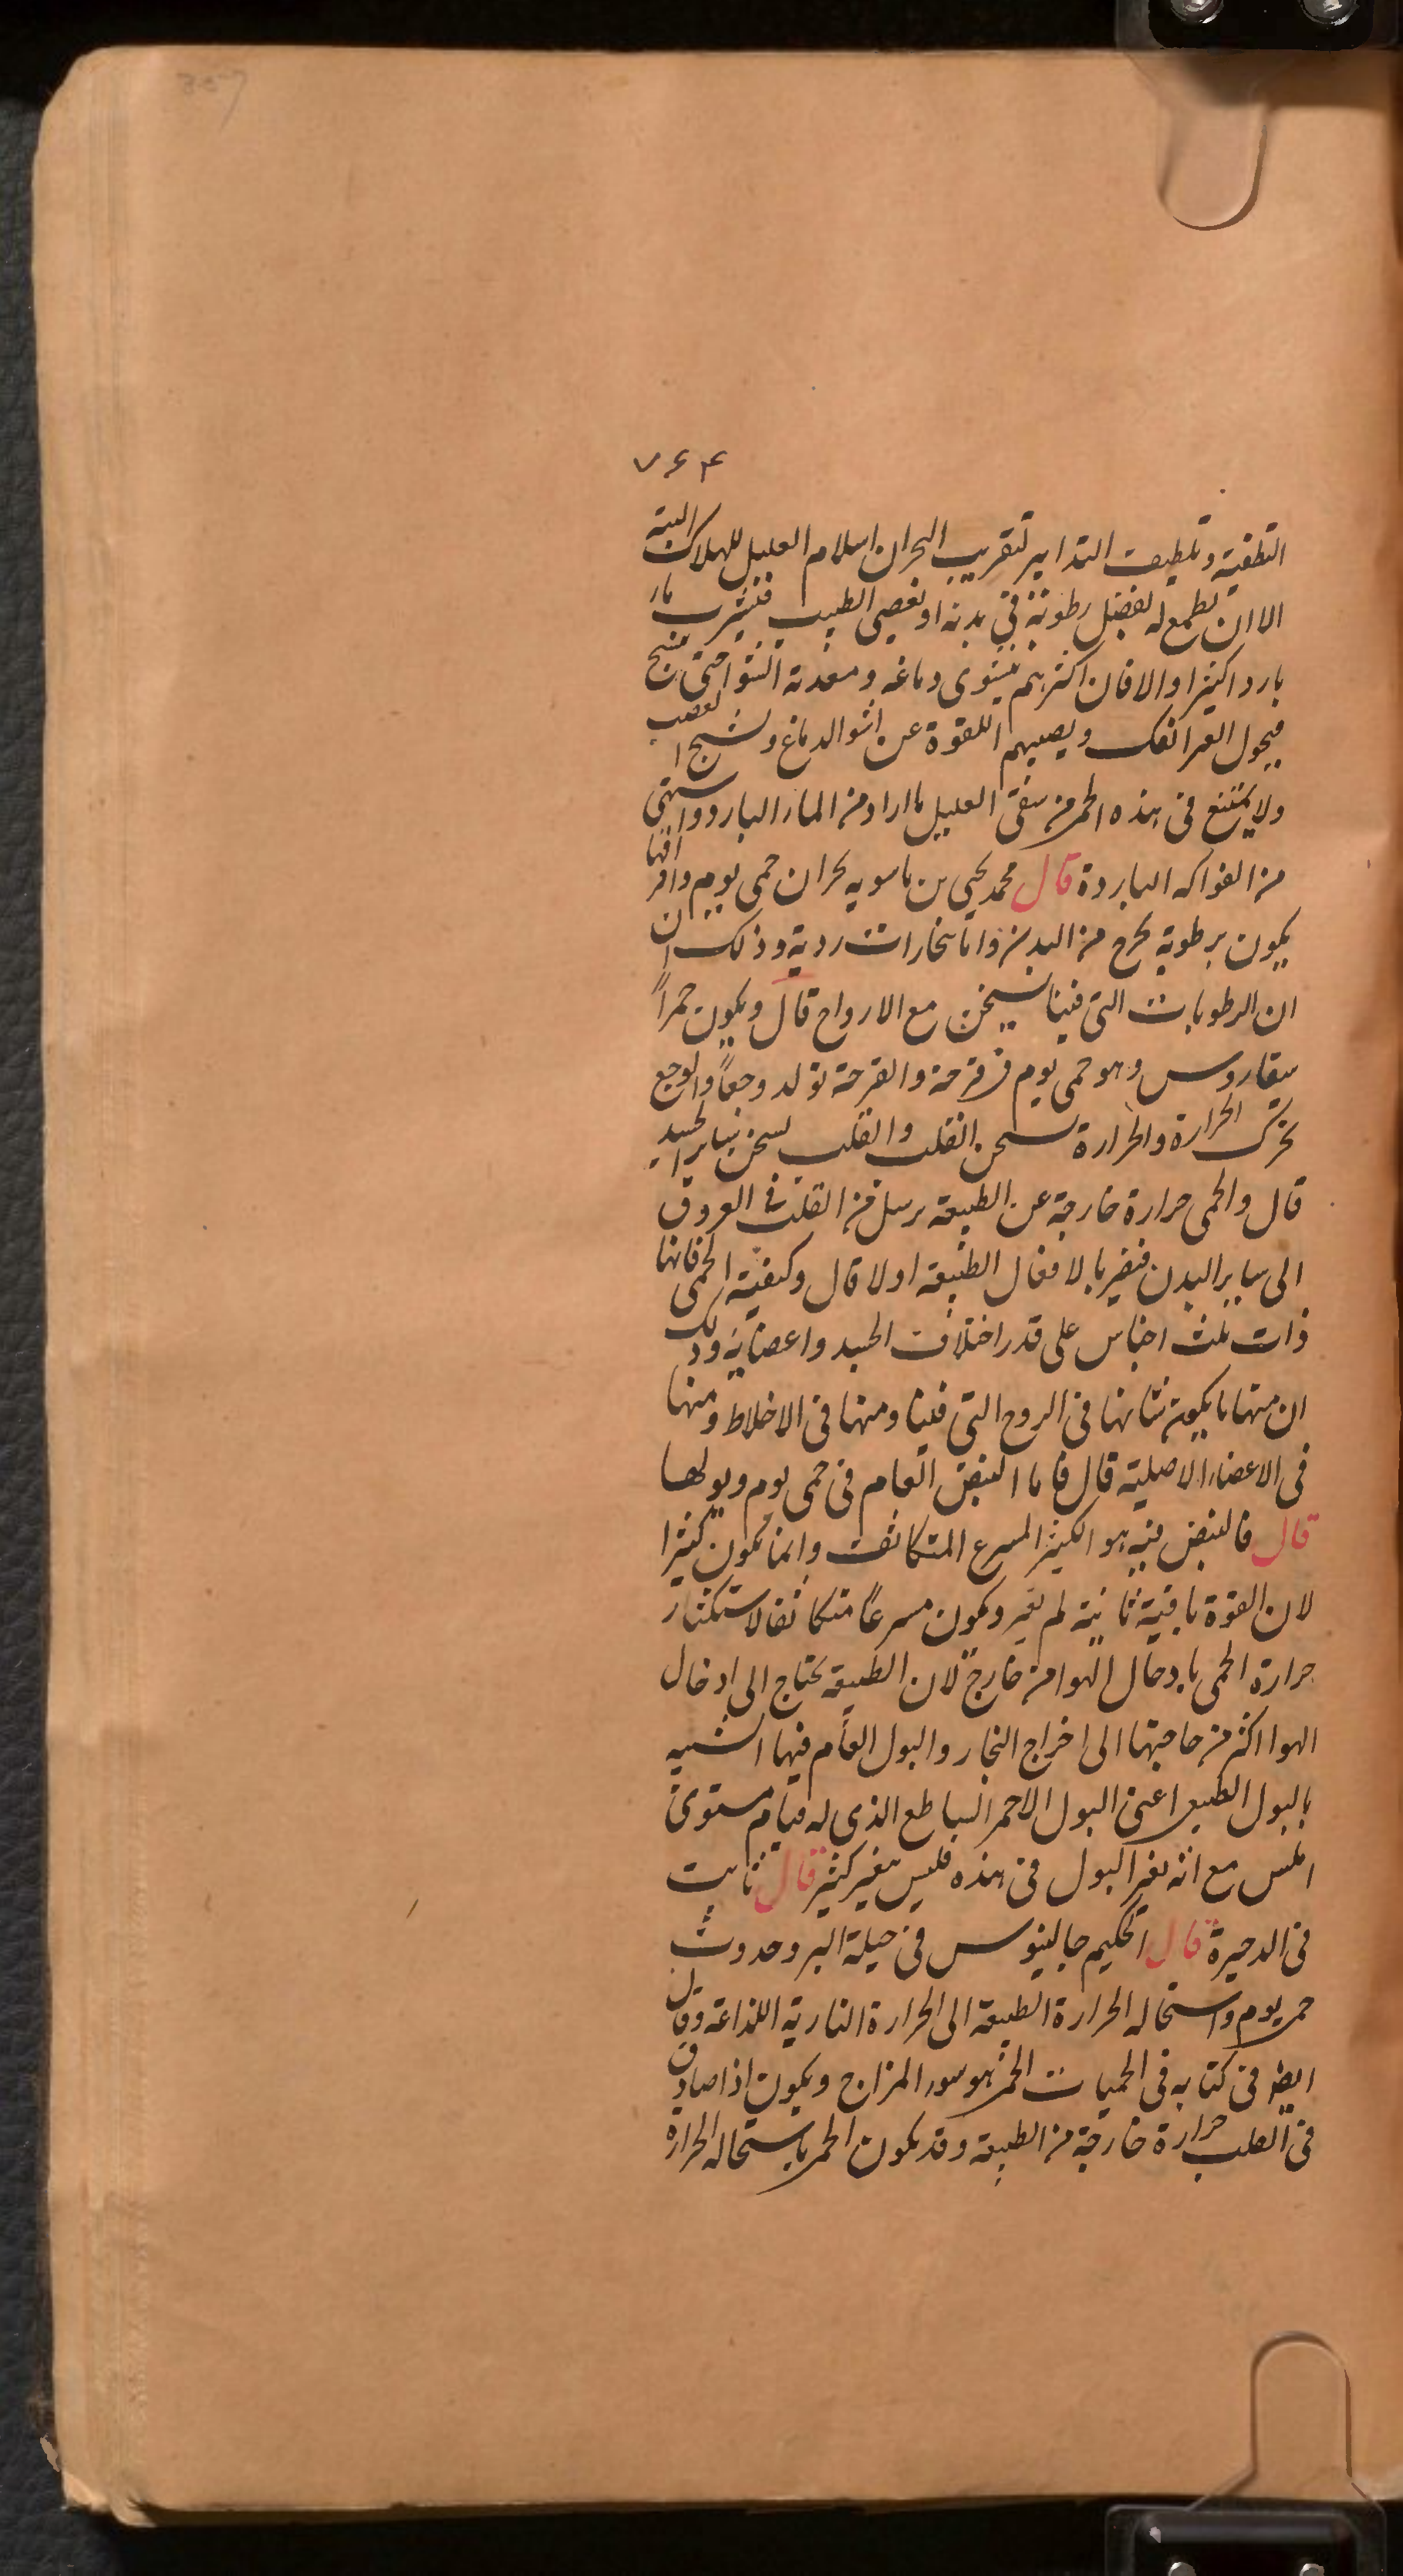 357
۷۶۴
التطفية وتلطيف التدابير لتقريب البحران اسلام العليل للهلاك البتة
الا ان يطمع له لفضل رطوبة في بدنه او يعصي الطبيب فيشرب ماء
باردا كثيرا والا فان اكثرهم يشوى دماغه ومعدته
فيحول ويصيبهم اللقوة عن الدماغ وتشنج العصب
ولا يمتنع في هذه الحمى من سقي العليل ما اراد من الماء البارد واستهى
من الفواكه الباردة قال محمد يحيى بن ماسويه بحران حمى يوم
يكون برطوبة يخرج من البدن واما بخارات ردية وذلك
ان الرطوبات التي فينا يسخن مع الارواح قال ويكون حمراً
سقاروس وهو حمى يوم من قرحة والقرحة تولد وجعاً والوجع
يحرك الحرارة والحرارة تسخن القلب والقلب يسخن ساير الجسد
قال والحمى حرارة خارجة عن الطبيعة يرسل من القلب في العروق
الى ساير البدن فيضر بالافعال الطبيعة اولا قال وكيفية الحمى فانها
ذات ثلث اجناس على قدر اختلاف الجسد واعضايه وذلك
ان منها ما يكون نشانها في الروح التي فينا ومنها في الاخلاط ومنها
في الاعضاء الاصلية قال فاما النبض العام في حمى يوم وبولها
قال فالنبض فيه هو الكثير المسرع المتكاثف وانما يكون كثيرا
لان القوة باقية ثانية لم يغير ويكون مسرعاً متكاثفا لاستكثار
حرارة الحمى بادخال الهوا من خارج لان الطبيعة يحتاج الى ادخال
الهوا اكثر من حاجتها الى اخراج البخار والبول العام فيها الشبيه
بالبول الطبيعي اعني البول الاحمر الساطع الذي له قيام مستوى
املس مع انه يغير البول في هذه فليس بتغير كثير قال ثابت
في الدخيرة قال الحكيم جالينوس في حيلة البرو حدوث
حمى يوم واستحاله الحرارة الطبيعة الى الحرارة النارية اللذاعة وقال
ايضا في كتابه في الحميات الحمى هو سوء المزاج ويكون اذا صادف
في القلب حرارة خارجة من الطبيعة وقد يكون الحمى باستحاله الحرارة